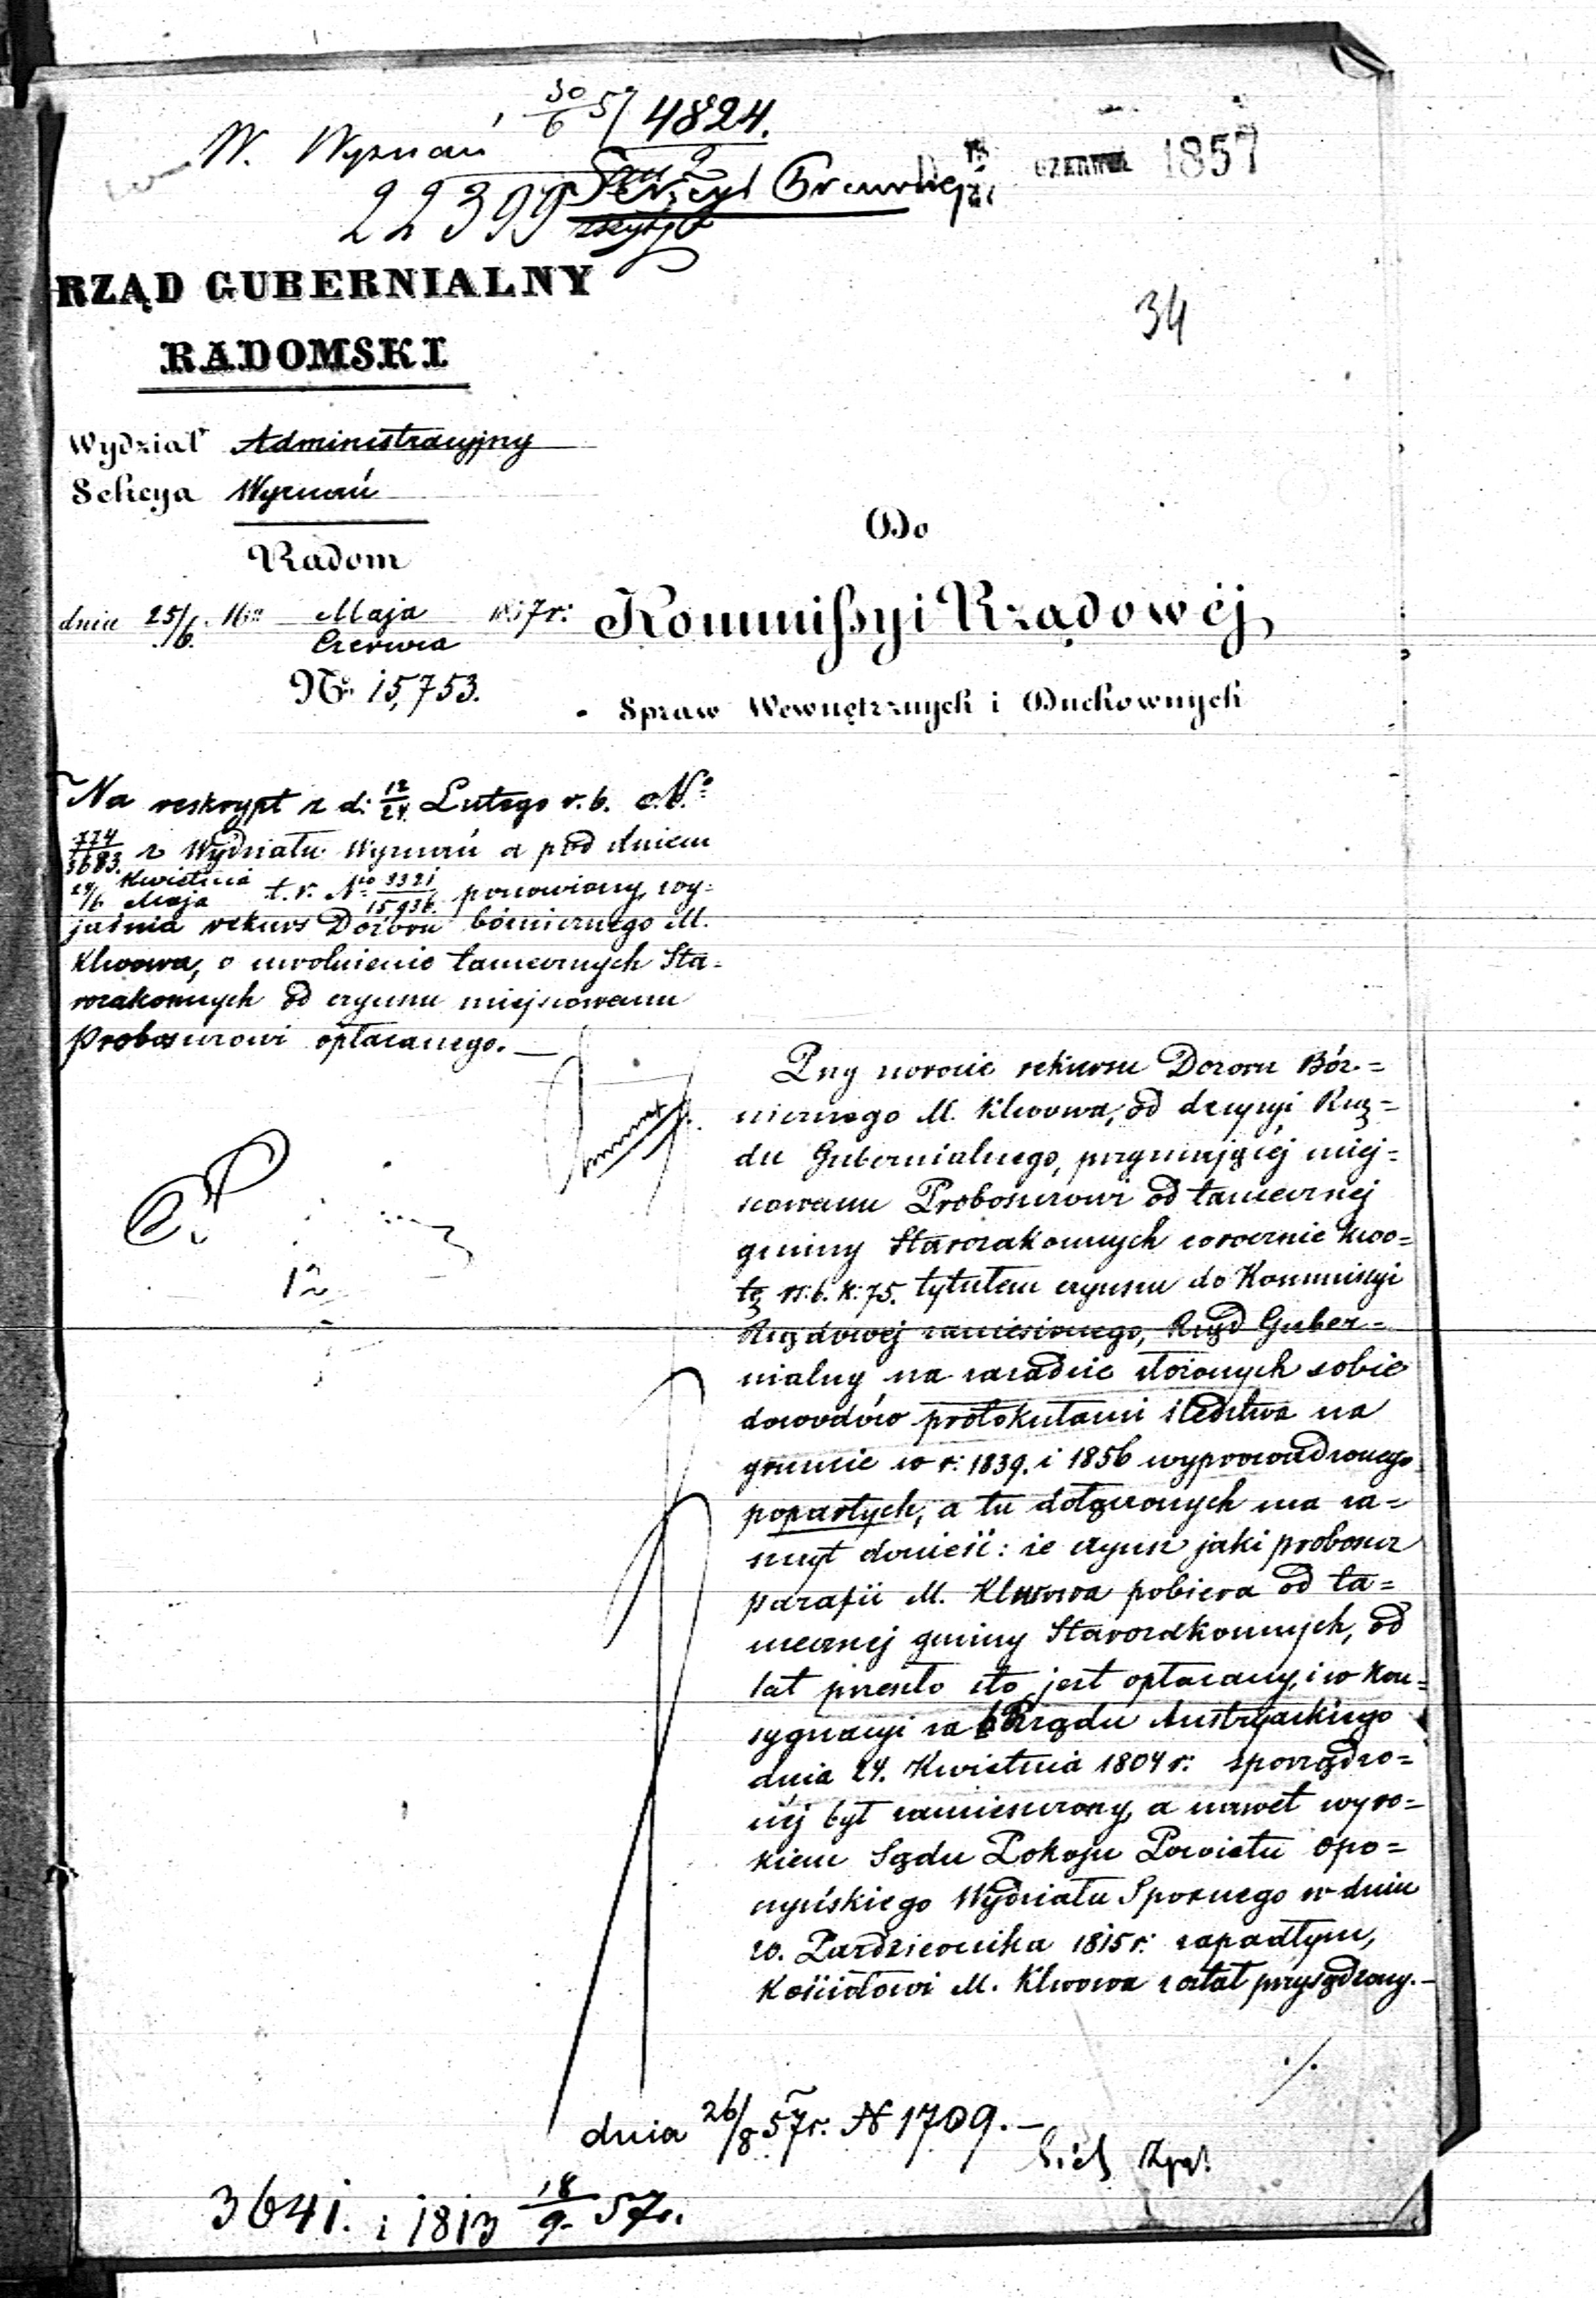 30/6 57 4824.
W. Wyznań
22399
CZERWCA 1857
34
RZĄD GUBERNIALNY
RADOMSKI
Wydział Administracyjny
Sekcya Wyznań
Radom
dnia 25/6. M-ca Maja/Czerwca 1857 r:
No. 15,753.
Do
Kommissyi Rządowéj
Spraw Wewnętrznych i Duchownych
Na reskrypt z d: 12/24. Lutego r. b. No
774/3683. z Wydziału Wyznań a pod dniem
24/6 Kwietnia/Maja t. r. No 3321/15936. ponowiony, wy=
jaśnia rekurs Dozoru bóżniczego M.
Klwowa, o uwolnienie tamecznych Sta=
rozakonnych od czynszu miejscowemu
Proboszczowi opłacanego. —
Przy zwrocie rekursu Dozoru Bóż=
niczego M. Klwowa, od decyzyi Rzą=
du Gubernialnego, przyznającéj miej=
scowemu Proboszczowi od tamecznej
gminy Starozakonnych corocznie kwo=
tę rs: 6. k: 75. tytułem czynszu do Kommissyi
Rządowej zaniesionego, Rząd Guber=
nialny na zasadzie złożonych sobie
dowodów protokułami śledztwa na
gruncie w r: 1839. i 1856 wyprowadzonego
popartych, a tu dołączonych ma za=
szczyt donieść: że czynsz jaki proboszcz
parafii M. Klwowa pobiera od ta=
mecznej gminy Starozakonnych, od
lat przeszło sto jest opłacany, i w kon=
sygnacyi za b Rządu Austryackiego
dnia 24. Kwietnia 1804 r: sporządzo=
néj był zamieszczony, a nawet wyro=
kiem Sądu Pokoju Powiatu Opo=
czyńskiego Wydziału Spornego w dniu
20. Października 1815 r: zapadłym,
Kościołowi M. Klwowa został przysądzony. —
./.
dnia 26/8 57 r. N 1709. —
3641. i 1813 18/9 57 r.